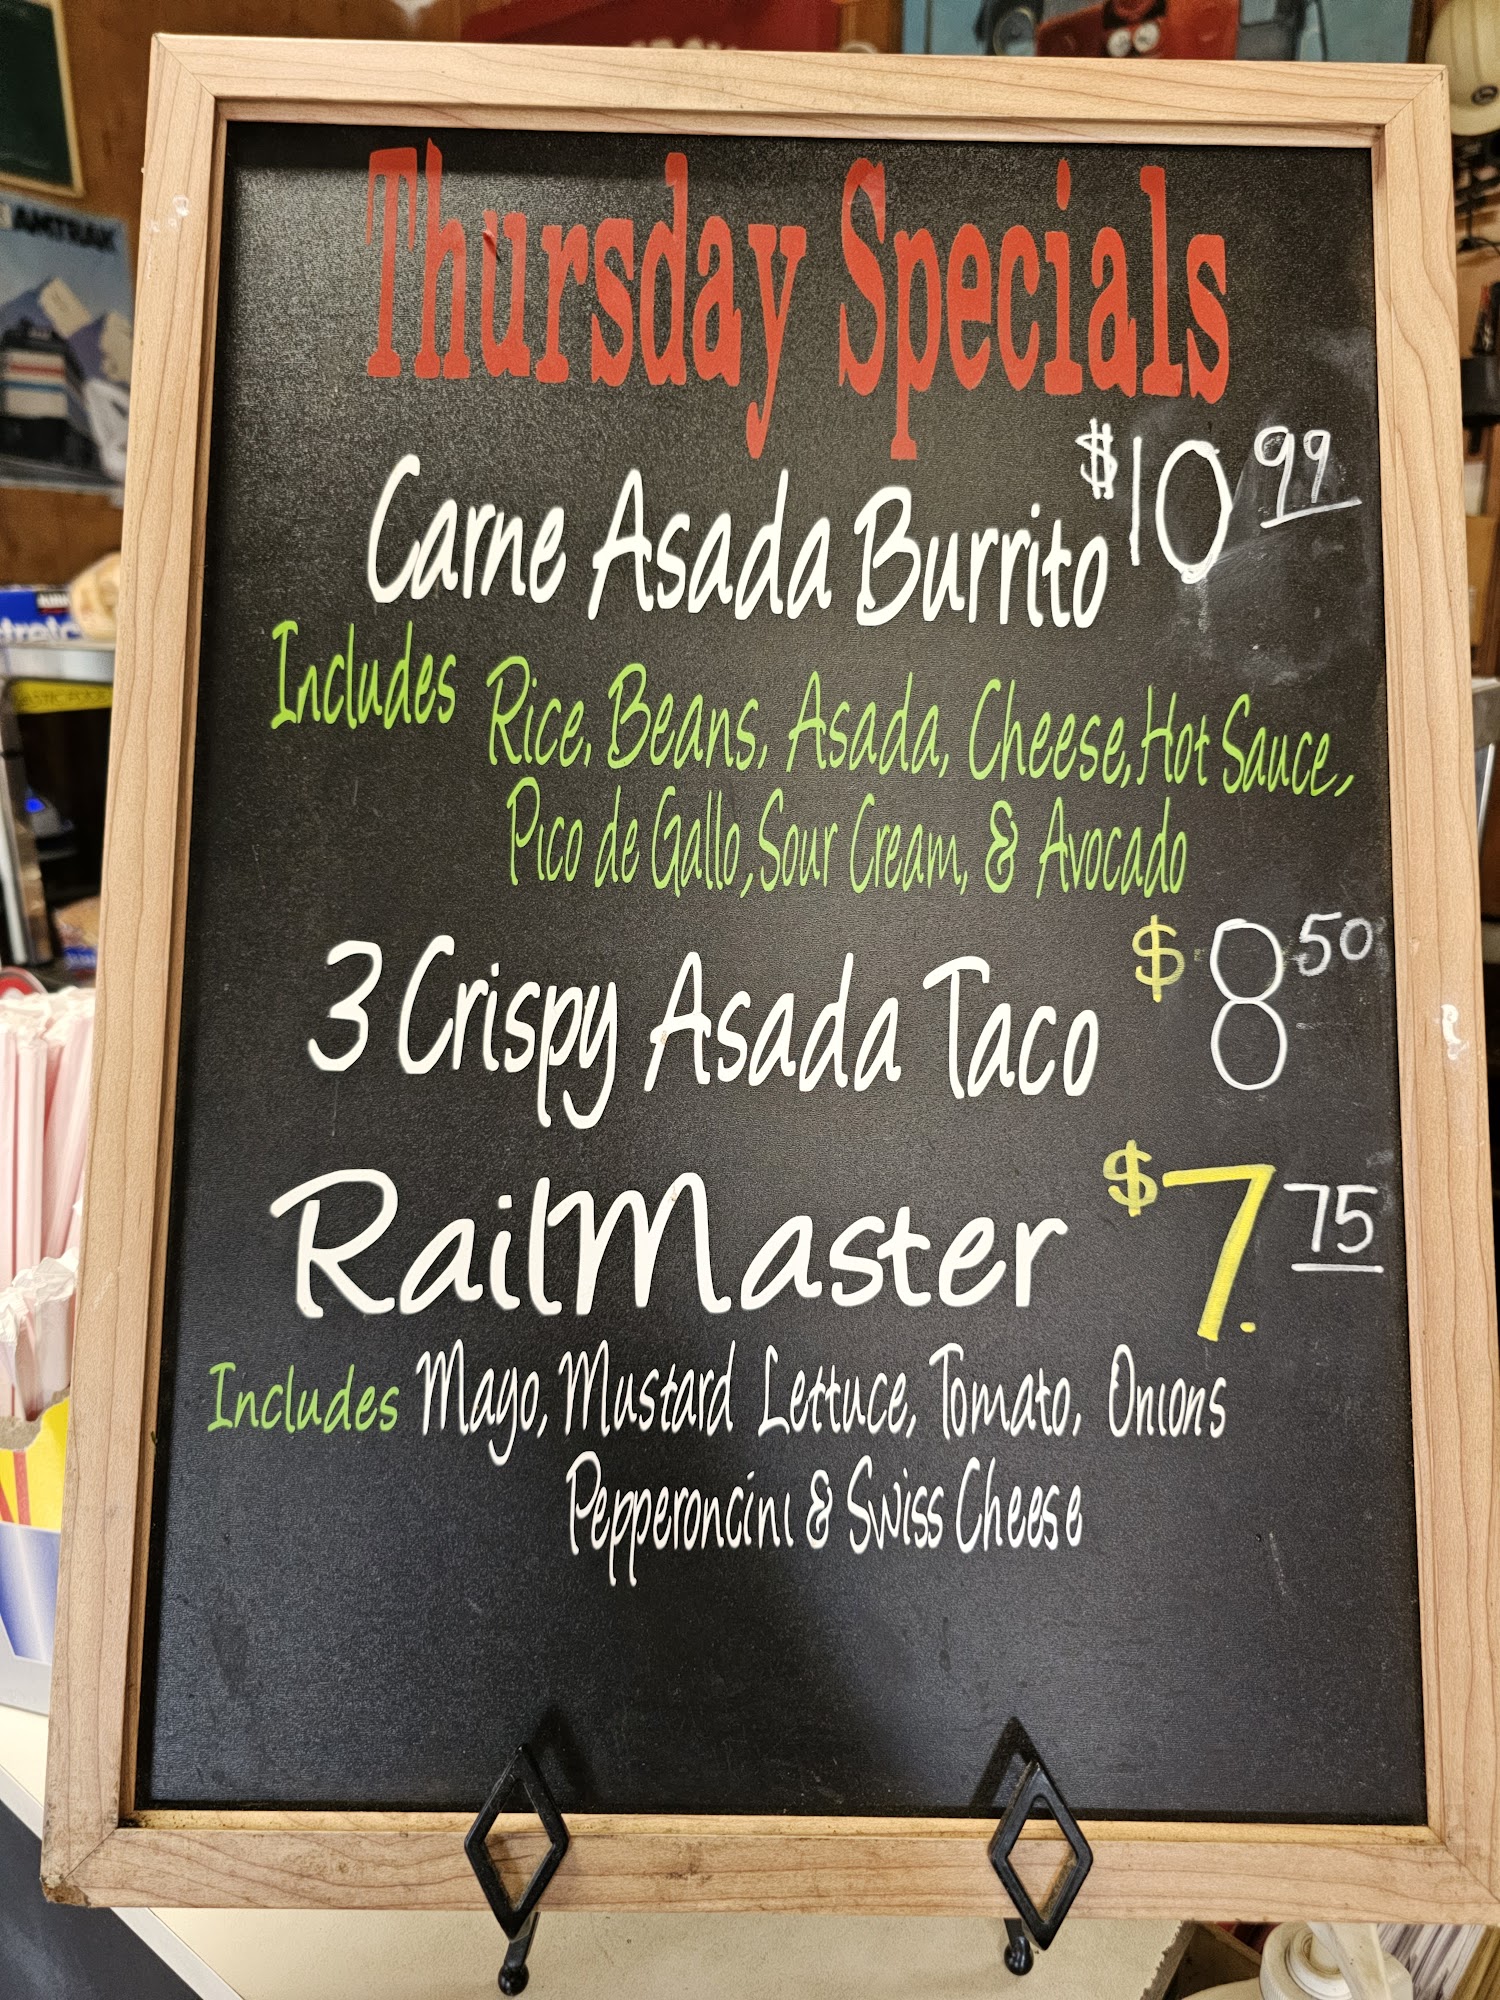 Thursday Specials
Carne Asada Burrito $10 99
Includes Rice, Beans, Asada, Cheese, Hot Sauce,
Pico de Gallo, Sour Cream, & Avocado
3 Crispy Asada Taco $8 50
RailMaster $7. 75
Includes Mayo, Mustard Lettuce, Tomato, Onions
Pepperoncini & Swiss Cheese
AMTRAK